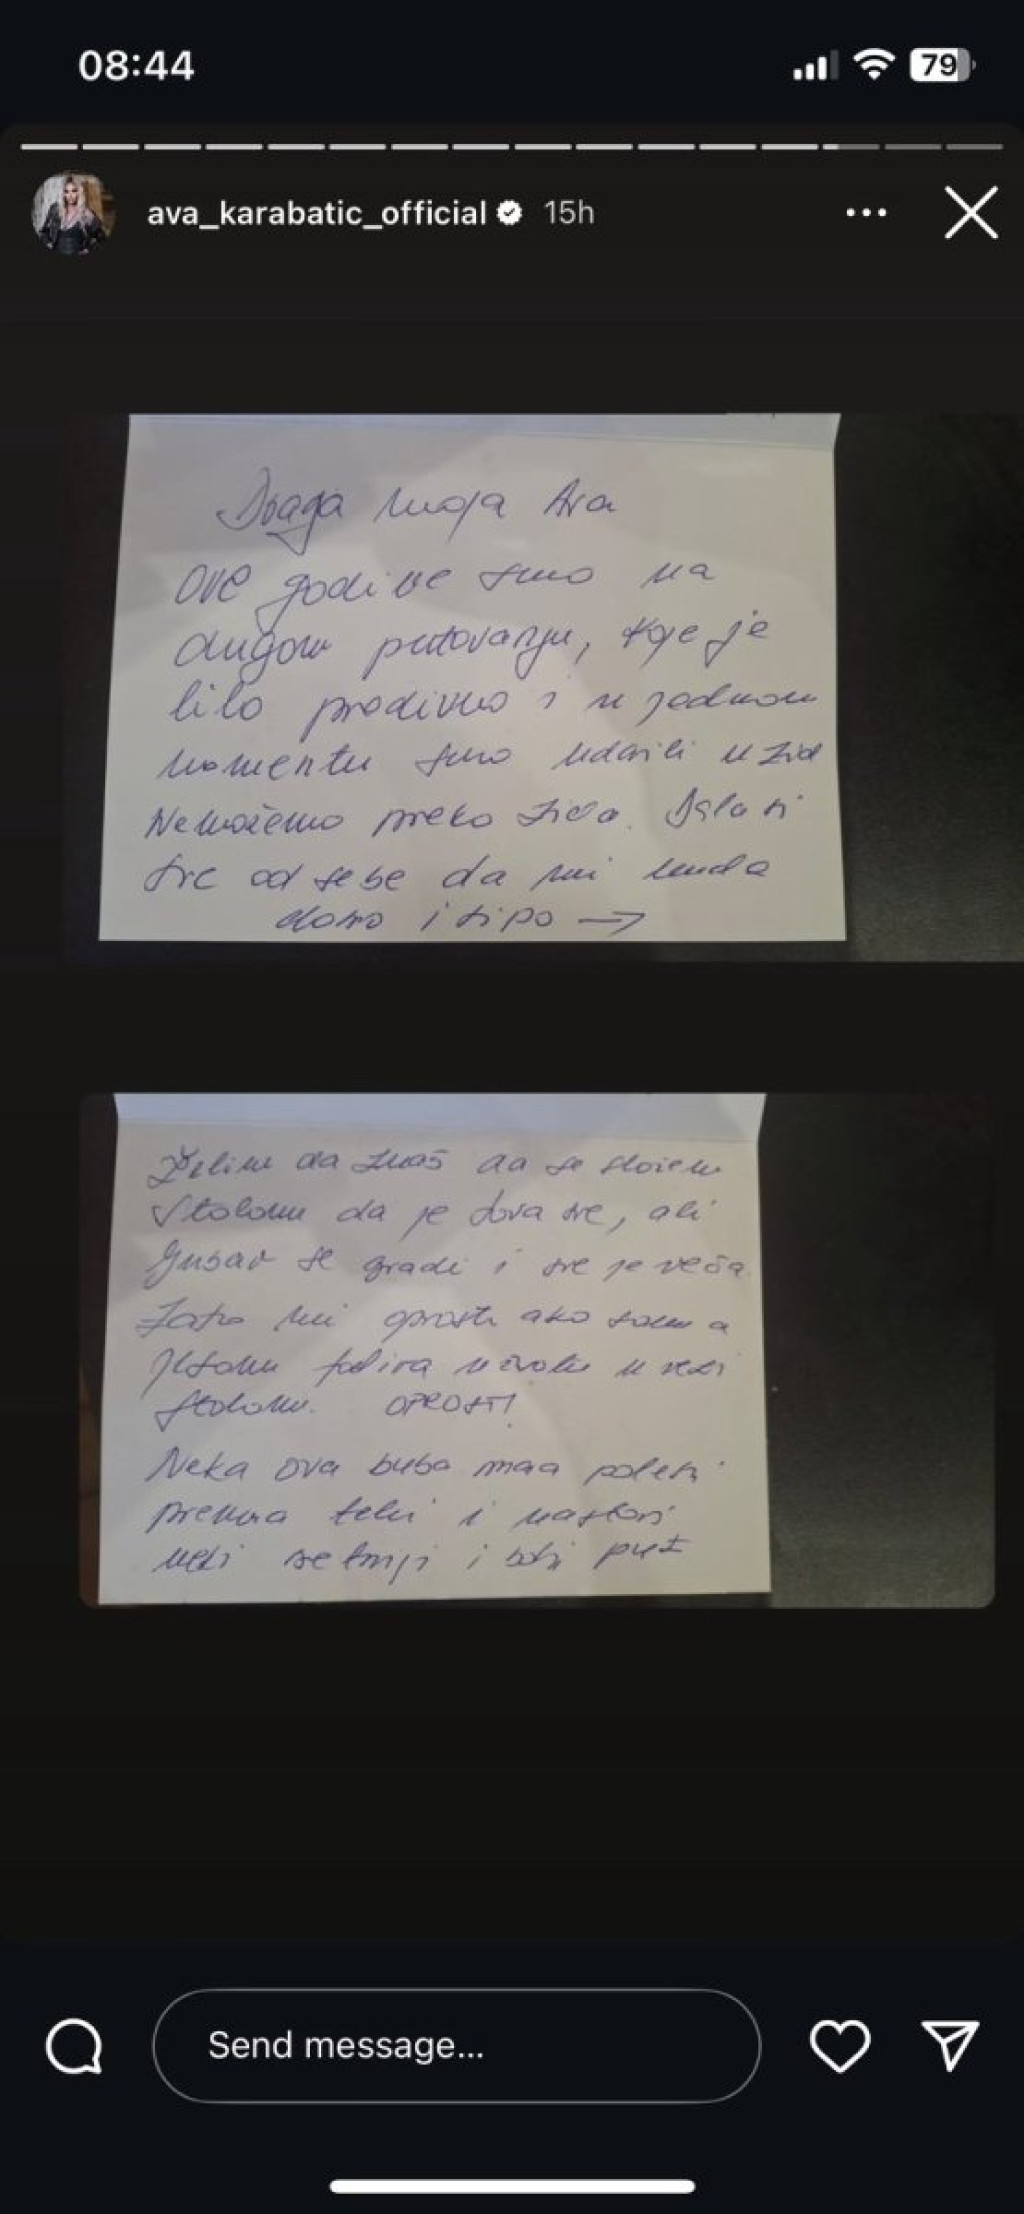 08:44
79
ava_karabatic_official 15h
Draga moja Ava
Ove godine smo na
dugom putovanju, koje je
bilo predivno i u jednom
momentu smo udarili u zid
Nemožemo preko zida. Dala si
sve od sebe da mi bude
dobro i lipo →
Želim da znaš da se slažem
stobom da je do sve, ali
ljubav se gradi i sve je veća.
Zato mi oprosti ako sam a
jesam falila u vezi
stobom. OPROSTI!
Neka ova buba mara poleti
prema tebi i nastavi
neki sretniji i bolji put
Send message...